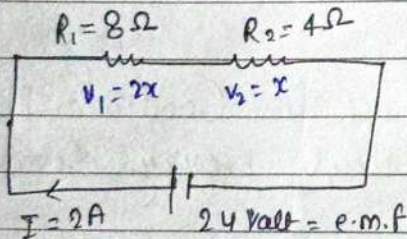 R₁ = 8 Ω R₂ = 4 Ω
V₁ = 2x V₂ = x
I = 2A 24 Valt = e.m.f